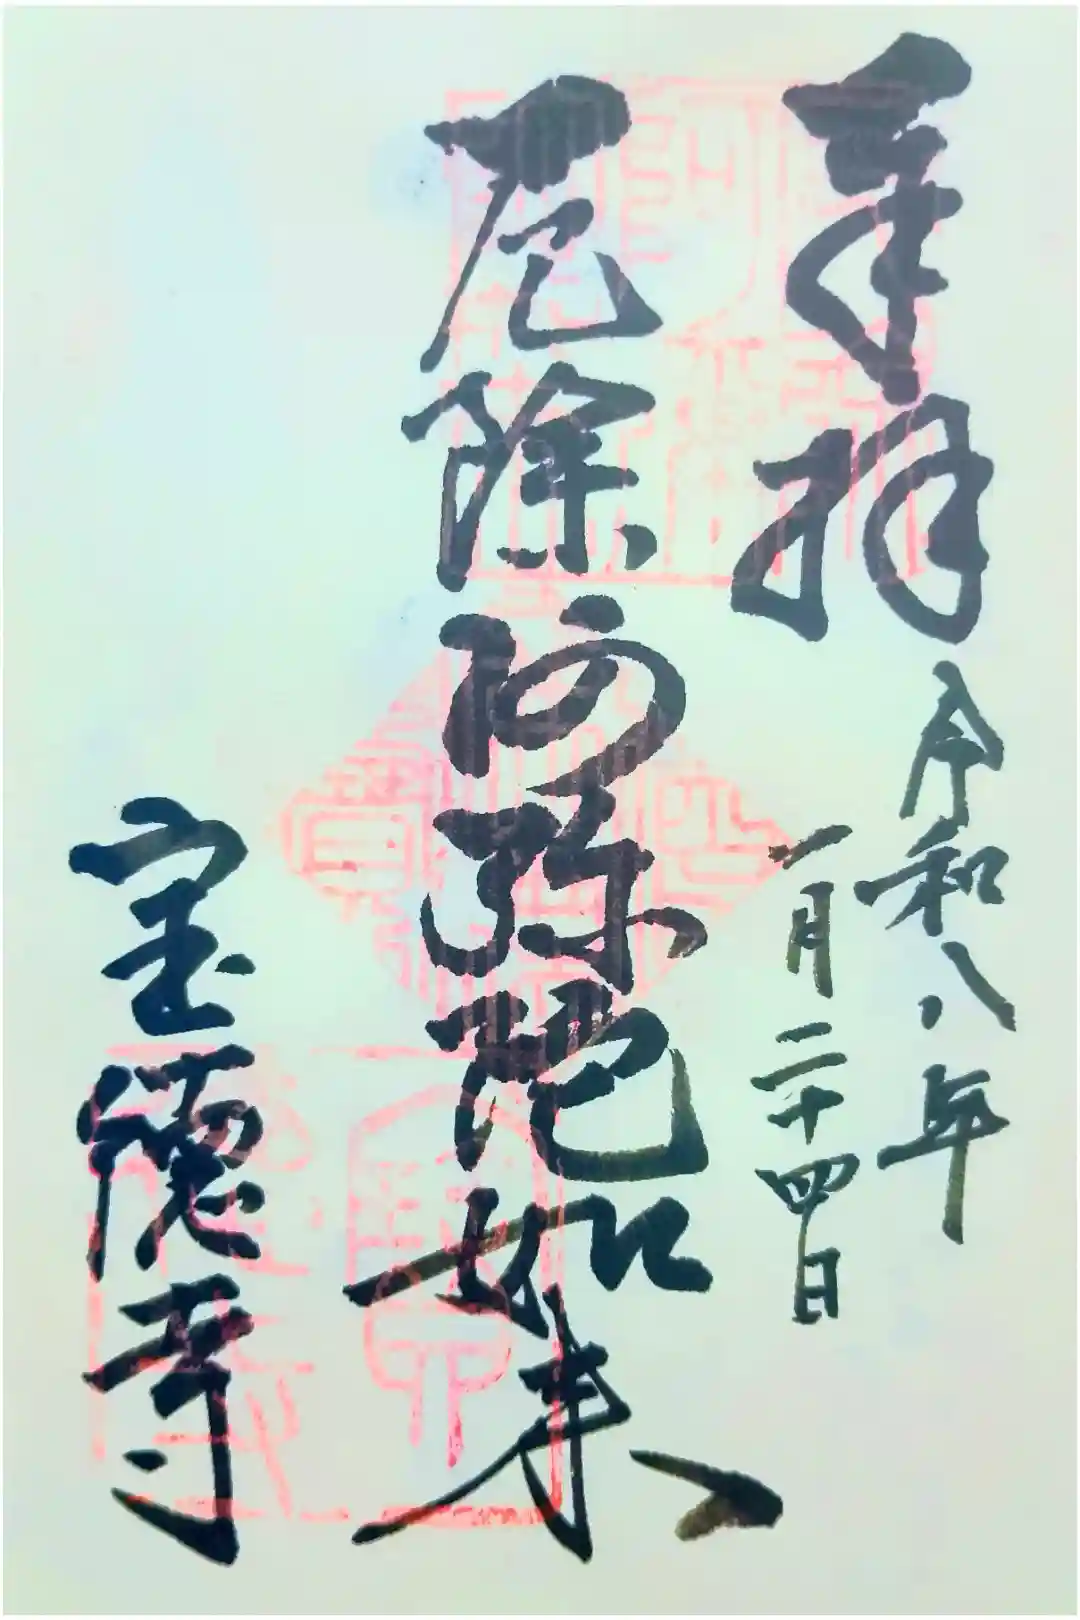 奉拝
令和八年
一月二十四日
厄除阿弥陀如来
宝德寺